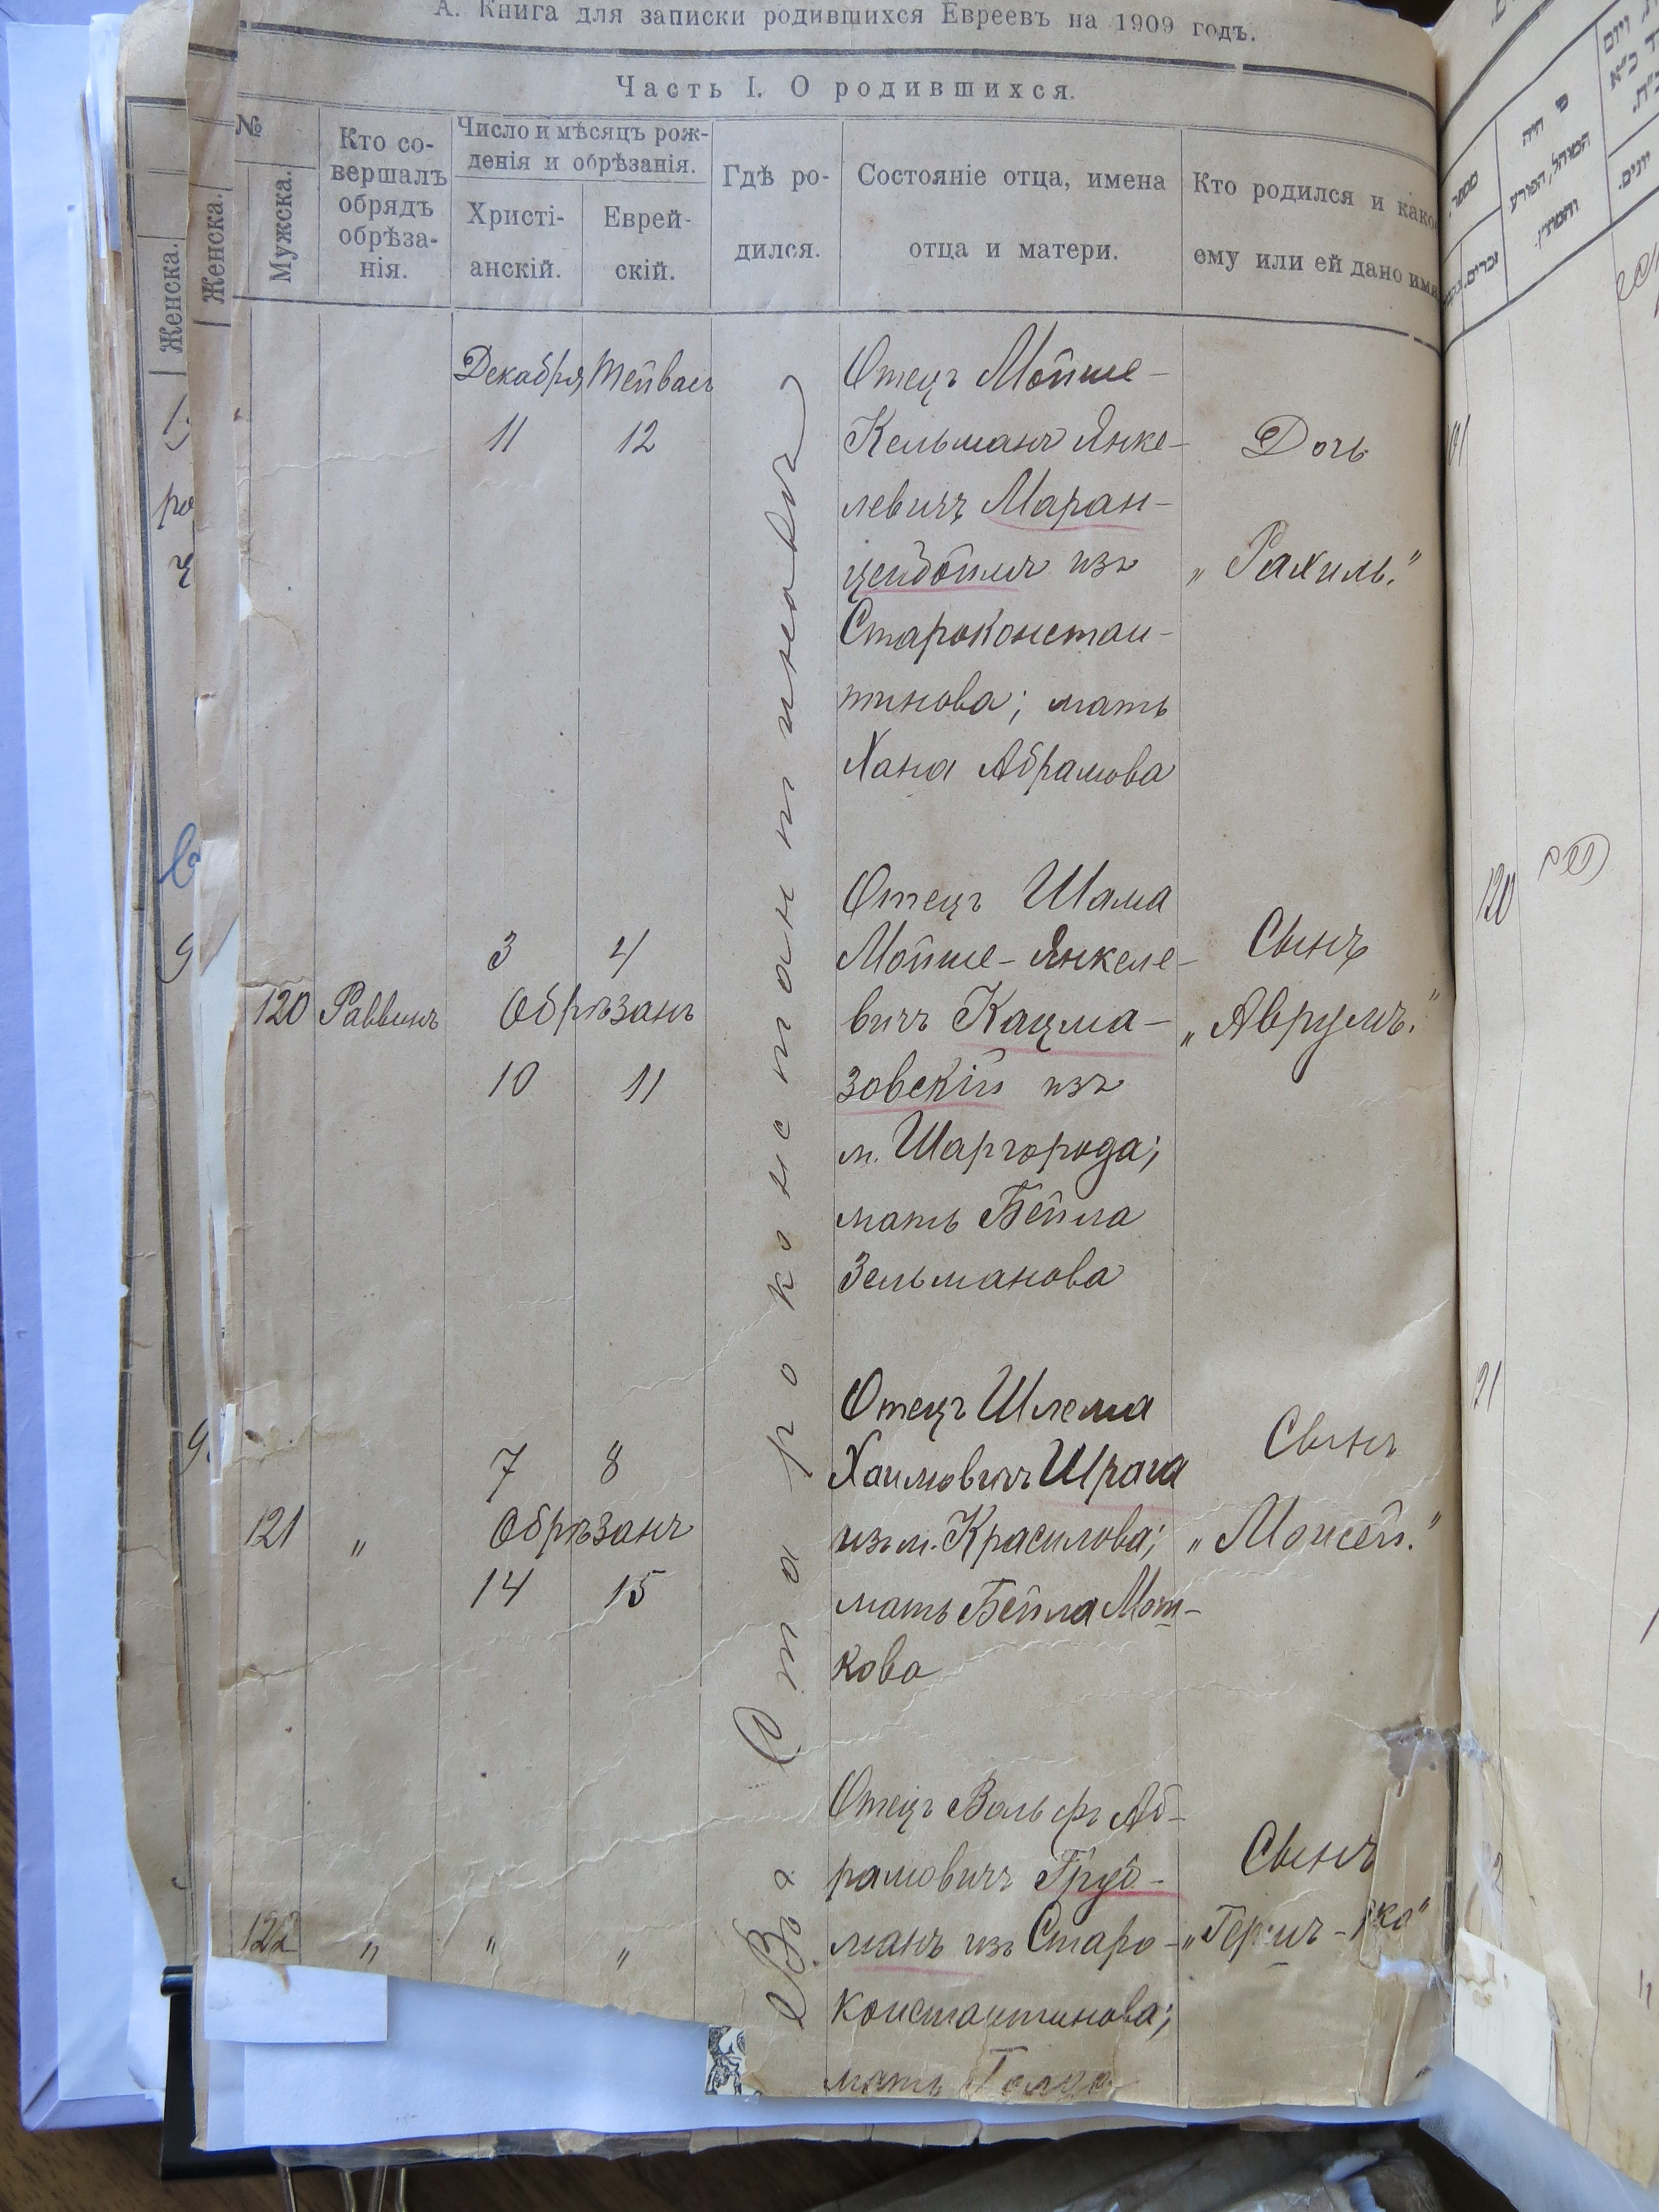 А. Книга для записки родившихся Евреевъ на 1909 годъ.
Часть I. О родившихся.
№
Женска.
Женска.
Мужска.
Кто со-
вершалъ
обрядъ
обрѣза-
нія.
Число и мѣсяцъ рож-
денія и обрѣзанія.
Христі-
анскій.
Еврей-
скій.
Гдѣ ро-
дился.
Состояніе отца, имена
отца и матери.
Кто родился и како
ему или ей дано имя
Декабря Тейвасъ
11 12
Въ Староконстантиновѣ
Отецъ Мойше-
Кельманъ Янке-
левичъ Маран-
цендойпъ изъ
Староконстан-
тинова; мать
Хана Абрамова
Дочь
„Рахиль."
120 Раввинъ
3 4
Обрѣзанъ
10 11
Отецъ Шама
Мойше-Янкеле-
вичъ Кацма-
зовскій изъ
м. Шаргорода;
мать Бейла
Зельманова
Сынъ
„Аврумъ."
121 „
7 8
Обрѣзанъ
14 15
Отецъ Шлема
Хаимовичъ Шрага
изъ м. Красилова;
мать Бейла Мот-
кова
Сынъ
„Моисей."
122 „ „ „
Отецъ Вольфъ Аб-
рамовичъ Груб-
манъ изъ Старо-
константинова;
мать Голда
Сынъ
„Гершъ-
120
21